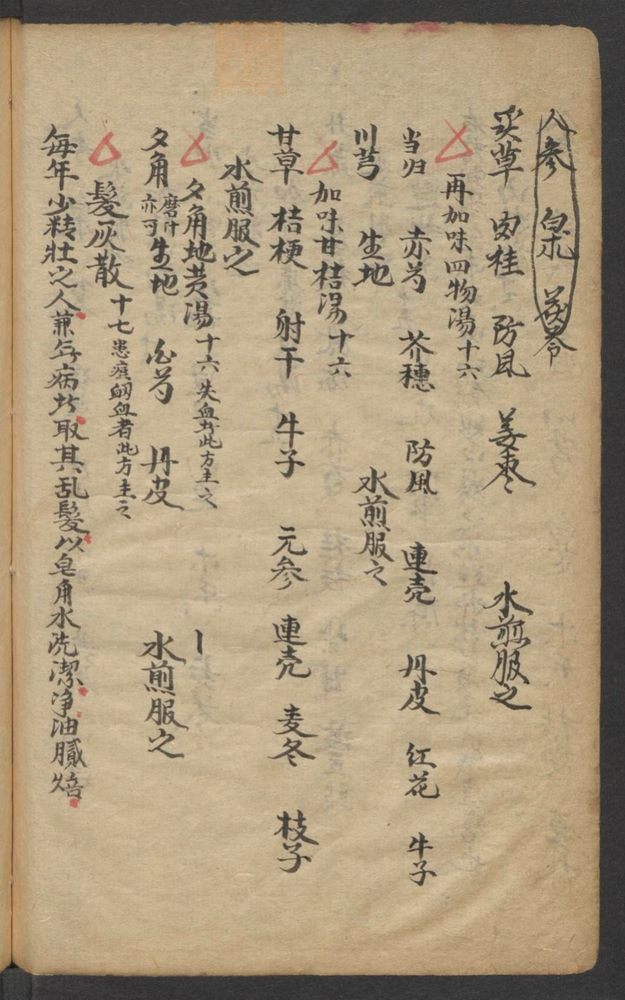 人參 白朮 茯苓
炙草 肉桂 防風 姜枣 水煎服之
再加味四物湯十六
当归 赤芍 芥穗 防風 連壳 丹皮 红花 牛子
川芎 生地 水煎服之
加味甘桔湯十六
甘草 桔梗 射干 牛子 元参 連壳 麦冬 枝子
水煎服之
夕角地黄湯十六 失血者此方主之
夕角 磨汁亦可 生地 白芍 丹皮 水煎服之
髮灰散十七 患瘨衂血者此方主之
每年少精壮之人兼無病者取其乱髮以皂角水洗潔净油膩焙